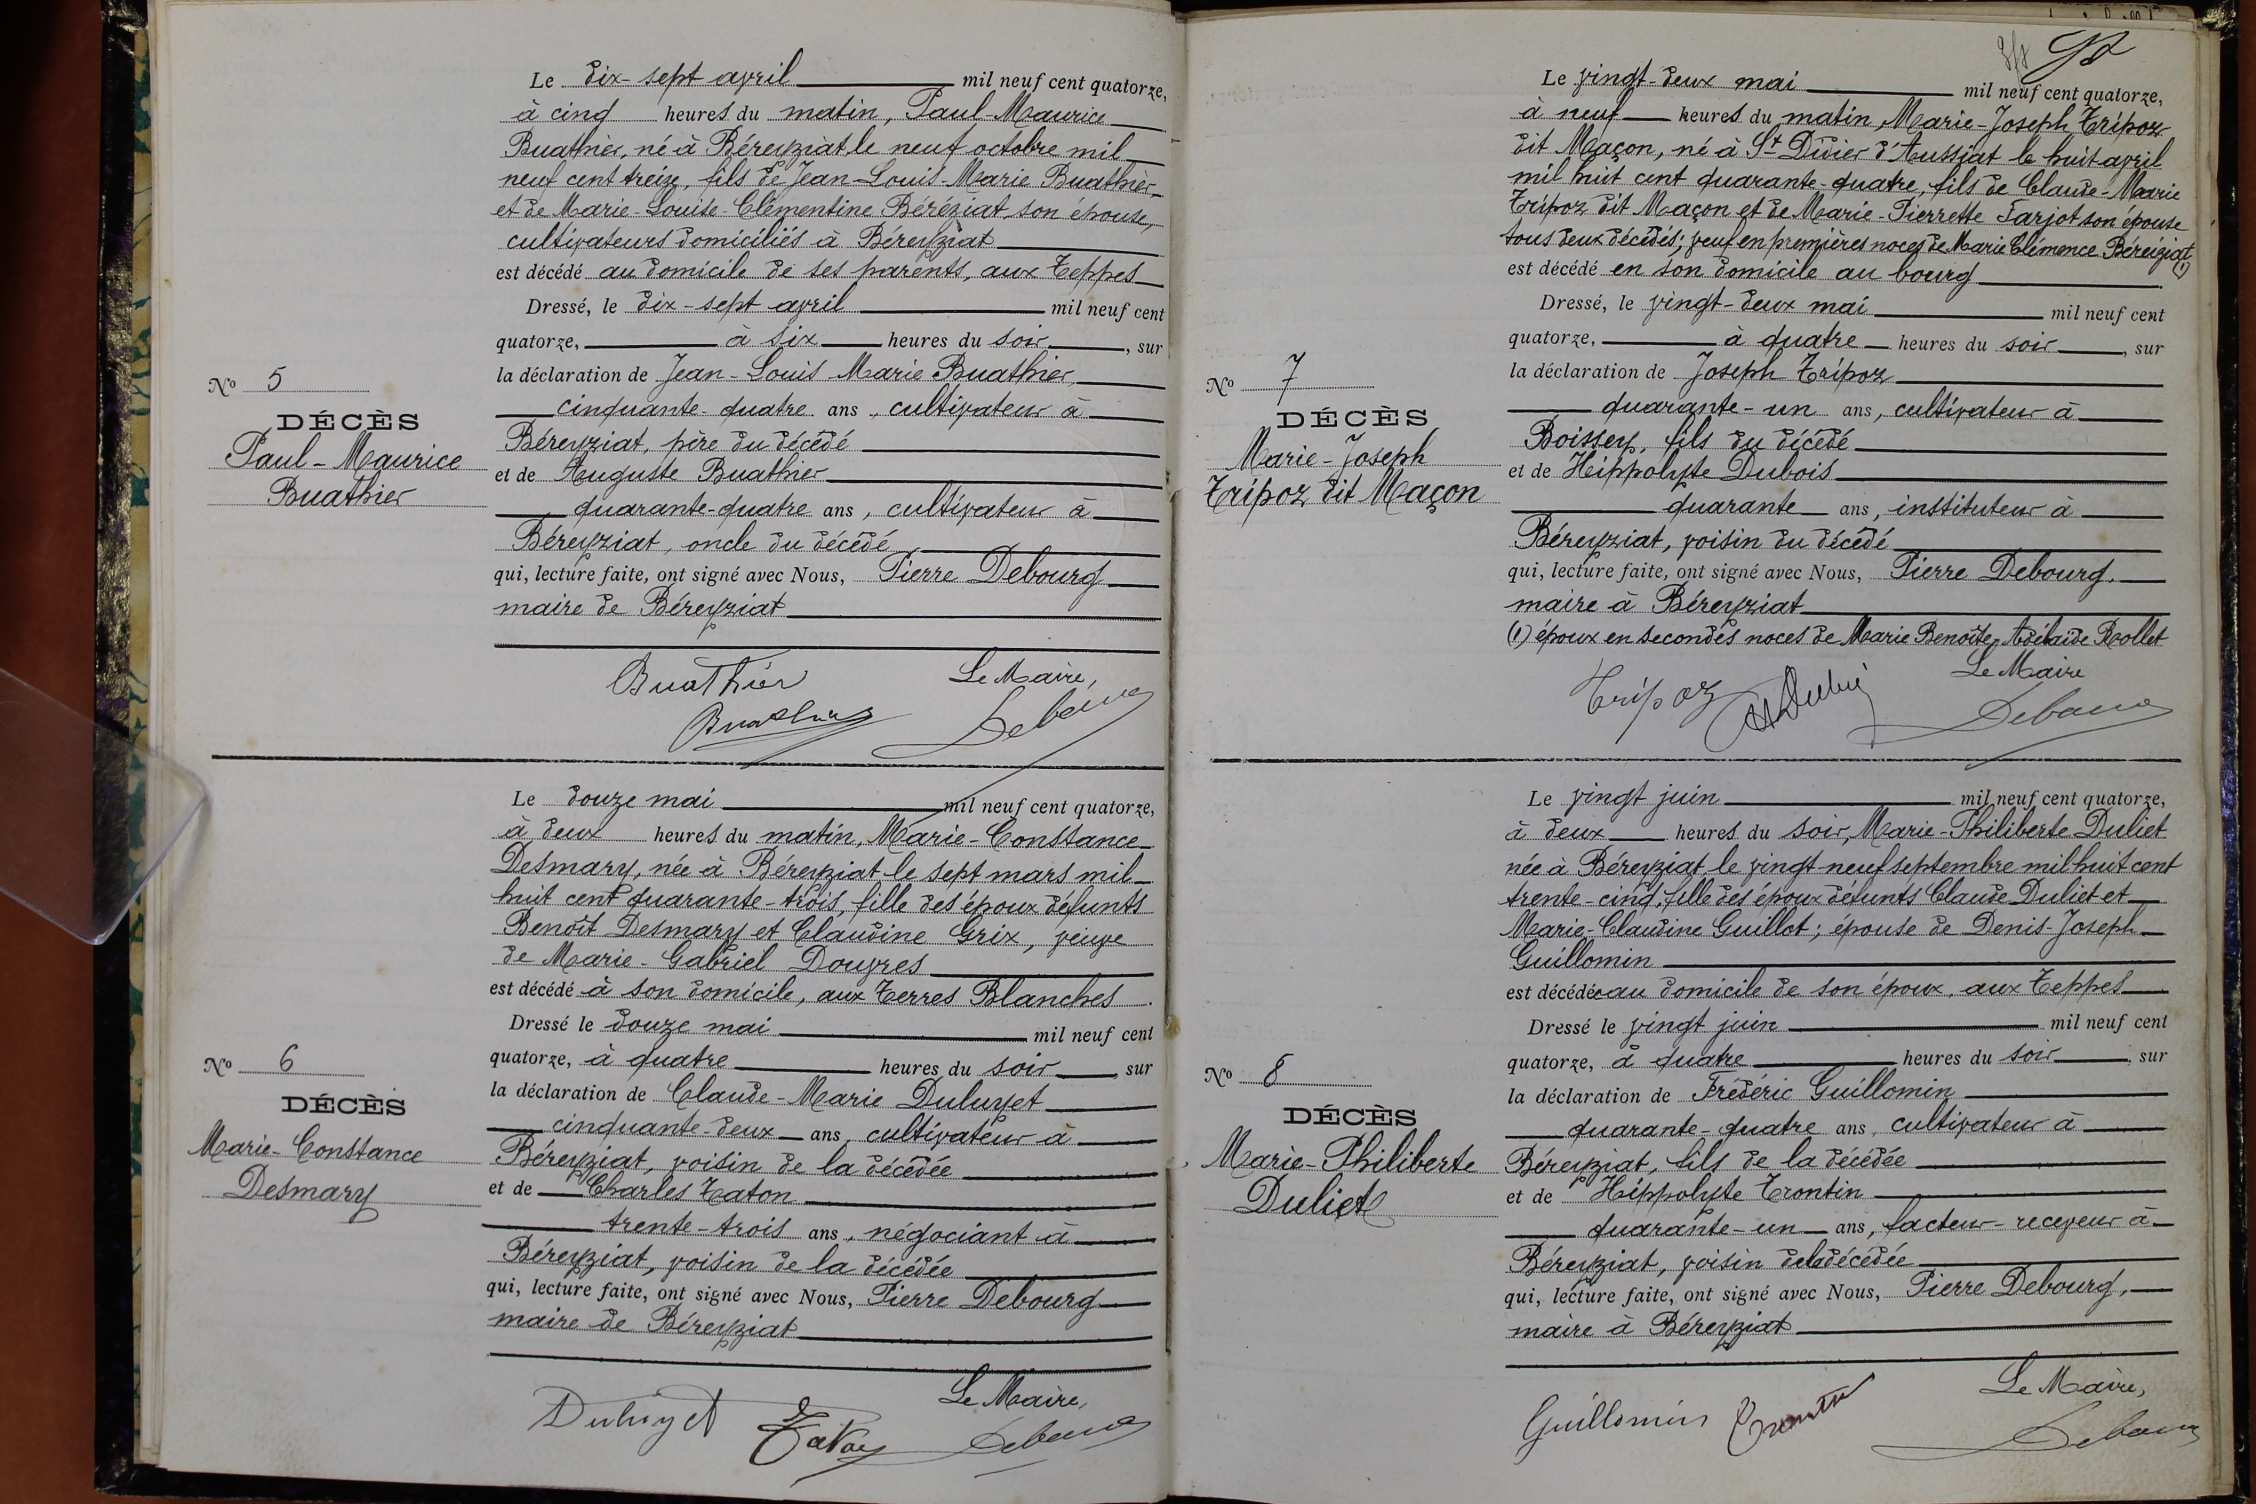 Le dix-sept avril mil neuf cent quatorze,
à cinq heures du matin, Paul-Maurice
Buathier, né à Béreyziat le neuf octobre mil
neuf cent treize, fils de Jean-Louis-Marie Buathier
et de Marie-Louise-Clémentine Béréziat, son épouse,
cultivateurs domiciliés à Béreyziat
est décédé au domicile de ses parents, aux Teppes
Dressé, le dix-sept avril mil neuf cent
quatorze, à six heures du soir, sur
la déclaration de Jean-Louis-Marie Buathier,
cinquante-quatre ans, cultivateur à
Béreyziat, père du décédé
et de Auguste Buathier
quarante-quatre ans, cultivateur à
Béreyziat, oncle du décédé
qui, lecture faite, ont signé avec Nous, Pierre Debourg
maire de Béreyziat
No 5
DÉCÈS
Paul-Maurice
Buathier
Buathier Le Maire,
Buathier Debourg
Le douze mai mil neuf cent quatorze,
à deux heures du matin, Marie-Constance
Desmary, née à Béreyziat le sept mars mil
huit cent quarante-trois, fille des époux défunts
Benoît Desmary et Claudine Grix, veuve
de Marie-Gabriel Douvres
est décédé à son domicile, aux Terres Blanches.
Dressé le douze mai mil neuf cent
quatorze, à quatre heures du soir, sur
la déclaration de Claude-Marie Duluyet
cinquante-deux ans, cultivateur à
Béreyziat, voisin de la décédée
et de Charles Taton
trente-trois ans, négociant à
Béreyziat, voisin de la décédée
qui, lecture faite, ont signé avec Nous, Pierre Debourg
maire de Béreyziat
No 6
DÉCÈS
Marie-Constance
Desmary
Le Maire,
Duluyet Taton Debourg
Le vingt-deux mai mil neuf cent quatorze,
à neuf heures du matin, Marie-Joseph Tripoz
dit Maçon, né à St Didier d'Aussiat le huit avril
mil huit cent quarante-quatre, fils de Claude-Marie
Tripoz dit Maçon et de Marie-Pierrette Farjot son épouse
tous deux décédés; veuf en premières noces de Marie Clémence Béreiziat (1)
est décédé en son domicile au bourg
Dressé, le vingt-deux mai mil neuf cent
quatorze, à quatre heures du soir, sur
la déclaration de Joseph Tripoz
quarante-un ans, cultivateur à
Boissey, fils du décédé
et de Hippolyte Dubois
quarante ans, instituteur à
Béreyziat, voisin du décédé
qui, lecture faite, ont signé avec Nous, Pierre Debourg,
maire à Béreyziat
(1) époux en secondes noces de Marie Benoîte Adélaïde Rollet
No 7
DÉCÈS
Marie-Joseph
Tripoz dit Maçon
Le Maire
Tripoz Debourg
Le vingt juin mil neuf cent quatorze,
à deux heures du soir, Marie-Philiberte Duliet
née à Béreyziat le vingt neuf septembre mil huit cent
trente-cinq, fille des époux défunts Claude Duliet et
Marie-Claudine Guillot; épouse de Denis-Joseph
Guillomin
est décédée au domicile de son époux, aux Teppes
Dressé le vingt juin mil neuf cent
quatorze, à quatre heures du soir, sur
la déclaration de Frédéric Guillomin
quarante-quatre ans, cultivateur à
Béreyziat, fils de la décédée
et de Hippolyte Trontin
quarante-un ans, facteur-receveur à
Béreyziat, voisin de la décédée
qui, lecture faite, ont signé avec Nous, Pierre Debourg,
maire à Béreyziat
No 8
DÉCÈS
Marie-Philiberte
Duliet
Le Maire,
Guillomin Trontin Debourg